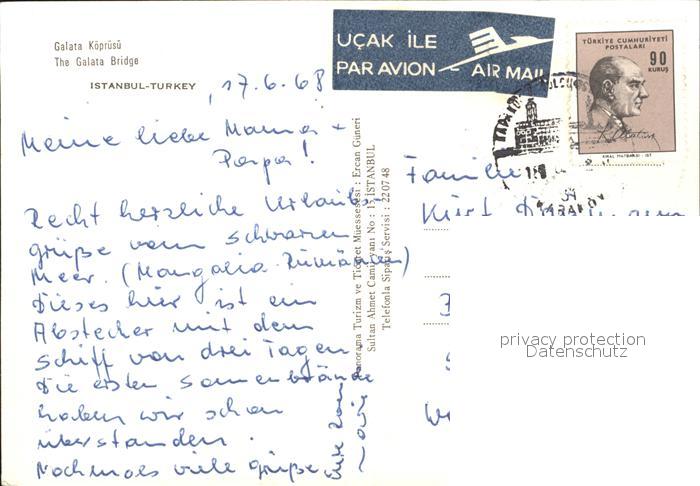 Galata Köprüsü
The Galata Bridge
ISTANBUL-TURKEY
UÇAK İLE
PAR AVION - AIR MAIL
TÜRKİYE CUMHURİYETİ
POSTALARI
90
KURUŞ
17.6.68
Meine liebe Mama +
Papa!
Recht herzliche Urlaubs-
grüße vom schwarzen
Meer. (Mangalia Rumänien)
Dieses hier ist ein
Abstecher mit dem
Schiff von drei Tagen
Die ersten Sonnenbrände
haben wir schon
überstanden.
Nochmals viele Grüße
Panorama Turizm ve Ticaret Müessesesi : Ercan Güneri
Sultan Ahmet Camii yanı No : 15 İSTANBUL
Telefonla Sipariş Servisi : 22 07 48
Familie
Kurt
privacy protection
Datenschutz